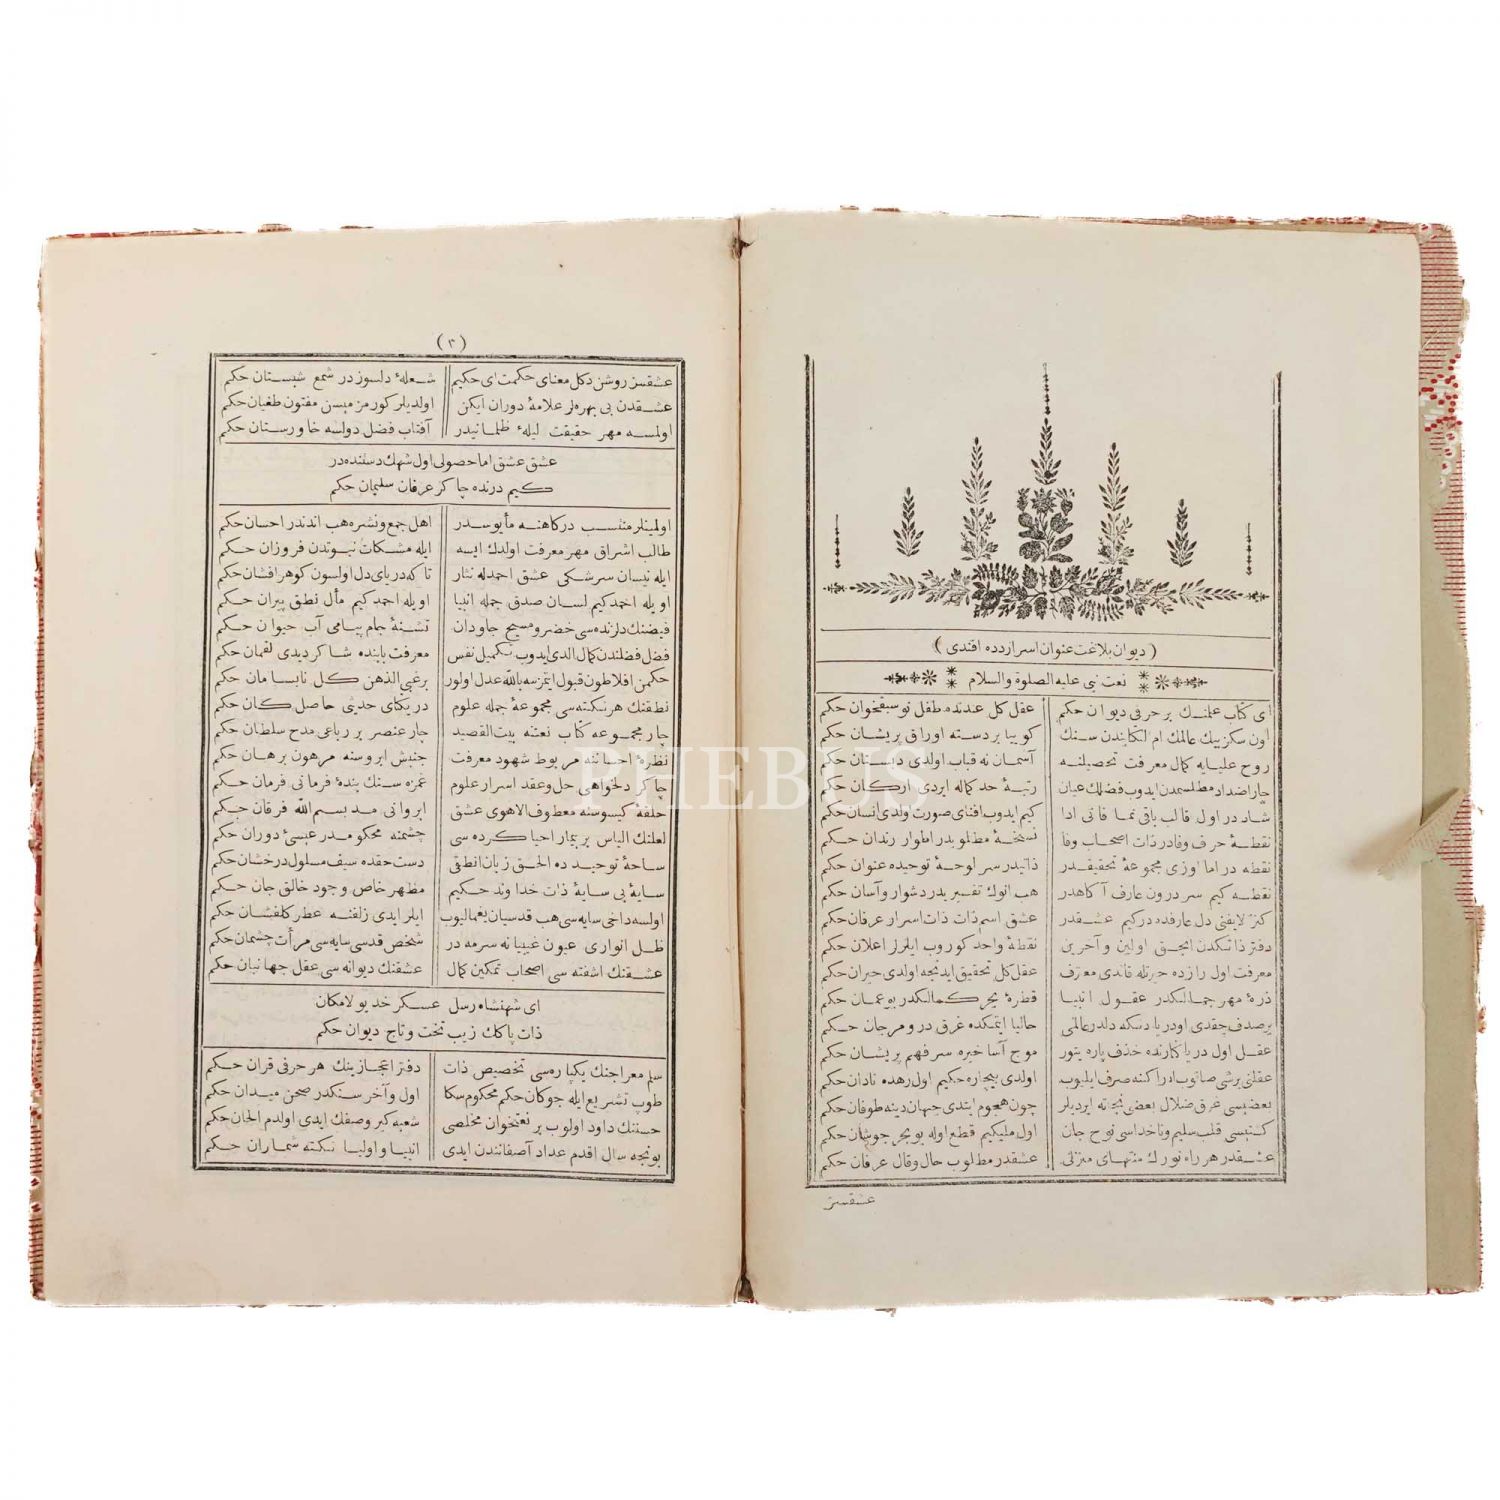 ( ديوان بلاغت عنوان اسرار دده افندى )
نعت نبى عليه الصلوة والسلام
اى كتاب علمنك بر حرفى ديوان حكم عقل كل عندنده طفل نو سبقخوان حكم
اون سكز بيك عالمك ام الكتابندن سنك كوييا بر دسته اوراق پريشان حكم
روح عليايه كمال معرفت تحصيلنه آسمان نه قباب اولدى دبستان حكم
چار اضداد مطلسمدن ايدوب فضلك عيان رتبۀ حد كماله ايردى اركان حكم
شاد در اول قالب باقى نما فانى ادا كيم ايدوب افناى صورت ولدى انسان حكم
نقطۀ حرف وفادر ذات اصحاب وفا نسخۀ مطلوبدر اطوار رندان حكم
نقطه در اما اوزى مجموعۀ تحقيقدر ذاتيدر سر لوحۀ توحيده عنوان حكم
نقطه كيم سر درون عارف آكاهدر هب انوك تفسيريدر دشوار وآسان حكم
كنز لايفنى دل عارفده در كيم عشقدر عشق اسم ذات ذات اسرار عرفان حكم
دفتر ذاتكدن انجق اولين وآخرين نقطۀ واحد كوروب ايلرلر اعلان حكم
معرفت اول رازده حيرتله قاندى معترف عقل كل تحقيق ايدنجه اولدى حيران حكم
ذرۀ مهر جمالكدر عقول انبيا قطرۀ بحر كمالكدر بو عمان حكم
بر صدف چقدى او دريادنكه دلدر عالمى حاليا ايتمكده غرق در ومرجان حكم
عقل اول دريا كنارنده خذف پاره يتور موج آسا خيره سر فهم پريشان حكم
عقلنى برشى صانوب ادراكنه صرف ايليوب اولدى بيچاره حكيم اول رهده نادان حكم
بعضيسى غرق ضلال بعضى نجاته ايرديلر چون هجوم ايتدى جهان دينه طوفان حكم
كنبسى قلب سليم وناخداسى نوح جان اول مليكيم قطع اوله بو بحر جوشان حكم
عشقدر هر راه نورك منتهاى منزلى عشقدر مطلوب حال وقال عرفان حكم
عشقسز
PHEBUS
(٣)
عشقسز روشن دكل معناى حكمت اى حكيم شعلۀ دلسوز در شمع شبستان حكم
عشقدن بى بهره لر علامۀ دوران ايكن اولديلر كورمز ميسن مفتون طغيان حكم
اولمسه مهر حقيقت ليلۀ ظلمانيدر آفتاب فضل دولسه خاورستان حكم
عشق عشق اما حصولى اول شهك دستنده در
كيم درنده چاكر عرفان سليمان حكم
اولمينلر منتسب دركاهنه مأيوسدر اهل جمع ونشره هب اندندر احسان حكم
طالب اشراق مهر معرفت اولدك ايسه ايله مشكات نبوتدن فروزان حكم
ايله نيسان سرشكى عشق احمدله نثار تا كه درياى دل اولسون كوهر افشان حكم
اويله احمد كيم لسان صدق جمله انبيا اويله احمد كيم مأل نطق پيران حكم
فيضنك دلزنده سى خضر ومسيح جاودان تشنۀ جام پيامى آب حيوان حكم
فضل فضلندن كمال الدى ايدوب تكميل نفس معرفت بابنده شاكرديدى لقمان حكم
حكمن افلاطون قبول ايتمزسه بالله عدل اولور برغبى الذهن كل نابسامان حكم
نطقنك هر نكته سى مجموعۀ جمله علوم در يكتاى حديثى حاصل كان حكم
چار مجموعه كتاب نعتنه بيت القصيد چار عنصر بر رباعى مدح سلطان حكم
نظرۀ احساننه مربوط شهود معرفت جنبش ابروسنه مرهون برهان حكم
چاكر دلخواهى حل وعقد اسرار علوم غمزه سنك بندۀ فرمانى فرمان حكم
حلقۀ كيسوسنه معطوف الاهوى عشق ابروانى مد بسم الله فرقان حكم
لعلنك الياس بر بيمار احيا كرده سى چشمنه محكومدر عيسئ دوران حكم
ساحۀ توحيد ده الحق زبان نطقى دست حقده سيف مسلول درخشان حكم
سايۀ بى سايۀ ذات خداوند حكيم مظهر خاص وجود خالق جان حكم
اولسه داخى سايه سى هب قدسيان يغماليوب ايلر ايدى زلفنه عطر كلفشان حكم
ظل انوارى عيون غيبيانه سرمه در شخص قدسى سايه سى مرأت چشمان حكم
عشقنك اشفته سى اصحاب تمكين كمال عشقنك ديوانه سى عقل جهانيان حكم
اى شهنشاه رسل عسكر خديو لامكان
ذات پاكك زيب تخت وتاج ديوان حكم
سلم معراجنك يكپاره سى تخصيص ذات دفتر اعجازينك هر حرفى قران حكم
طوپ تشريع ايله جوكان حكم محكوم سكا اول وآخر سنكدر صحن ميدان حكم
حسننك داود اولوب بر نغمتخوان مخلصى شعبه كير وصفك ايدى اولدم الحان حكم
بونجه سال اقدم عداد آصفانندن ايدى انبيا واوليا نكته شماران حكم